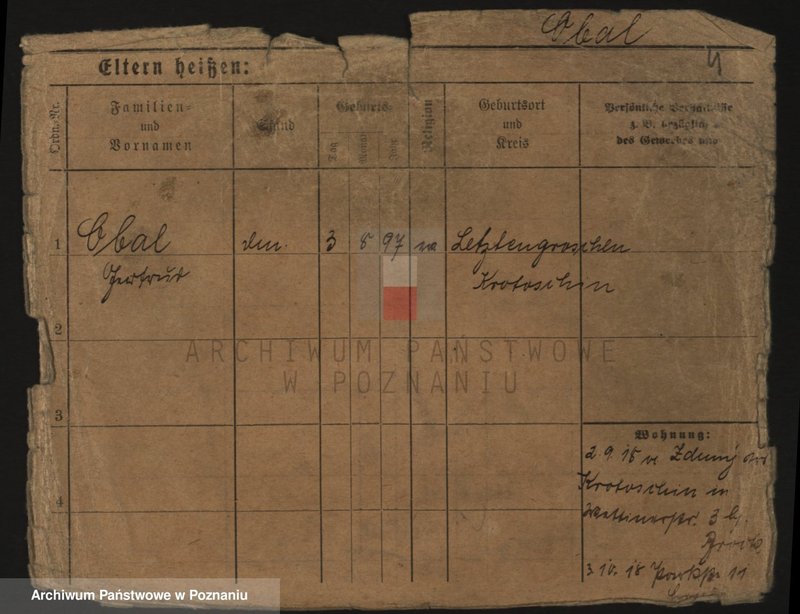 Obal
Eltern heißen:
4
Ordn.-Nr.
Familien-
und
Vornamen
Stand
Geburts-
Tag
Monat
Jahr
Religion
Geburtsort
und
Kreis
Persönliche
z. B. bezüglich
des Gewerbes usw
1 Obal 3 8 97 Letztengroschen
Gertrud Krotoschin
2
ARCHIWUM PAŃSTWOWE
W POZNANIU
3
Wohnung:
2.9.18 Zduny
Krotoschin in
4
3
3.10.18 11
Archiwum Państwowe w Poznaniu